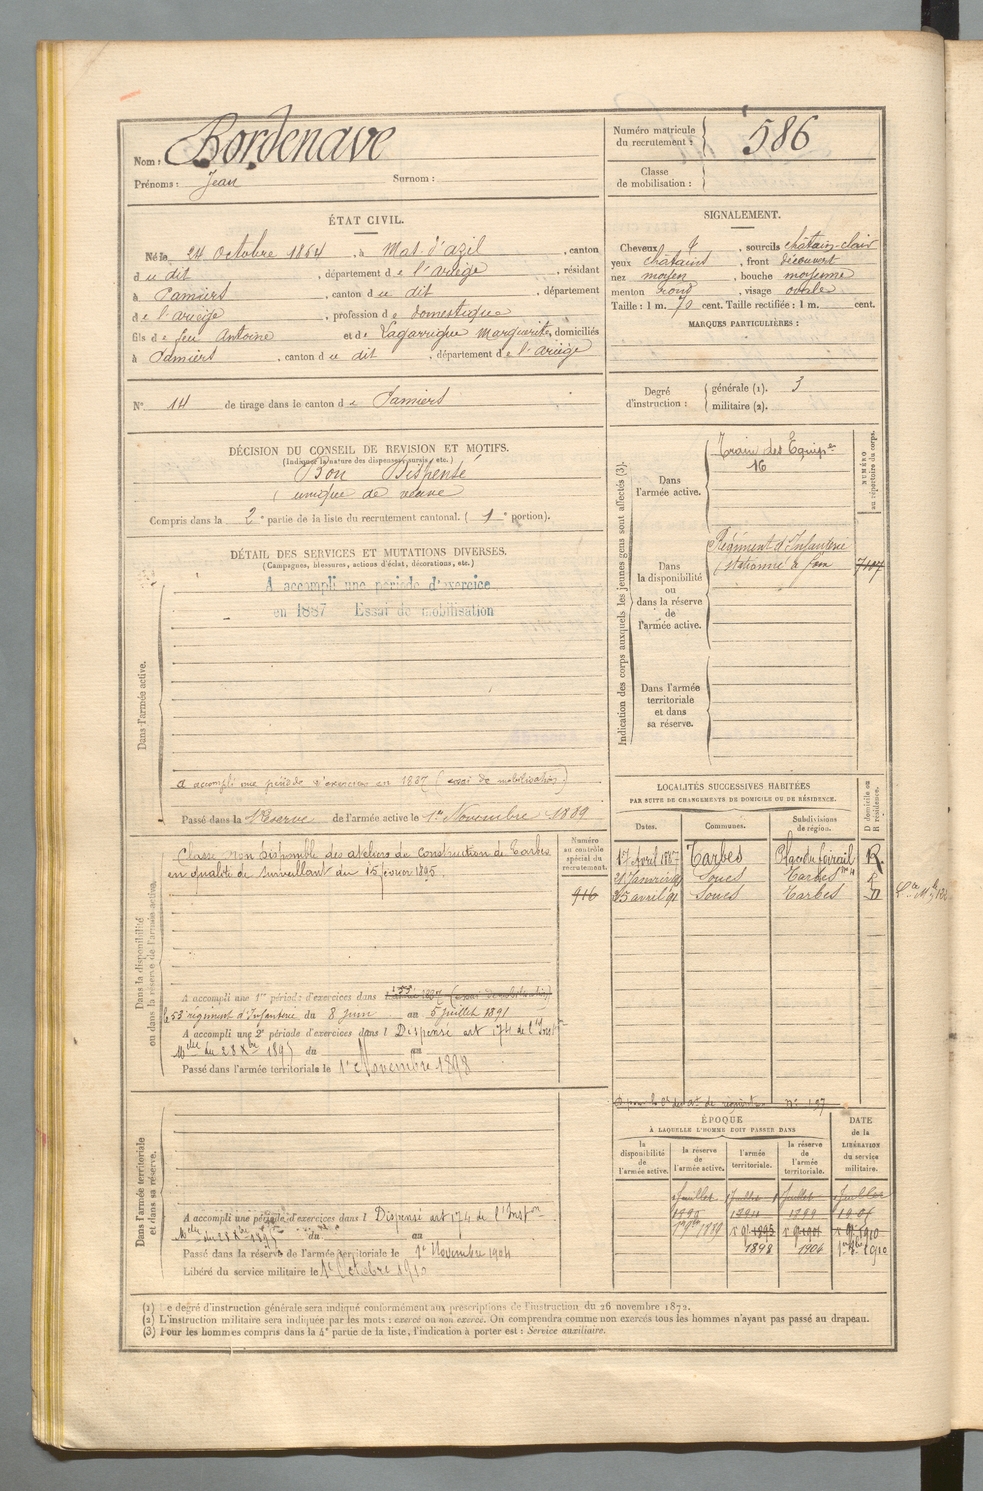 Nom : Bordenave
Prénoms : Jean Surnom :
Numéro matricule du recrutement : 586
Classe de mobilisation :
ÉTAT CIVIL.
Né le 24 Octobre 1864, à Mas d'azil, canton
du dit, département de l'ariège, résidant
à Pamiers, canton du dit, département
de l'ariège, profession de domestique
fils de feu Antoine et de Lagarrigue Marguerite, domiciliés
à Pamiers, canton du dit, département de l'ariège
N° 14 de tirage dans le canton de Pamiers
SIGNALEMENT.
Cheveux &, sourcils châtain-clair
yeux châtains, front découvert
nez moyen, bouche moyenne
menton rond, visage ovale
Taille : 1 m. 70 cent. Taille rectifiée : 1 m. cent.
MARQUES PARTICULIÈRES :
Degré d'instruction : générale (1). 3
militaire (2).
DÉCISION DU CONSEIL DE REVISION ET MOTIFS.
(Indiquer la nature des dispenses, sursis, etc.)
Bon Dispensé
unique de veuve
Compris dans la 2e partie de la liste du recrutement cantonal. (1e portion).
DÉTAIL DES SERVICES ET MUTATIONS DIVERSES.
(Campagnes, blessures, actions d'éclat, décorations, etc.)
Dans l'armée active.
A accompli une période d'exercice
en 1887 Essai de mobilisation
a accompli une période d'exercices en 1887 (essai de mobilisation)
Passé dans la Réserve de l'armée active le 1er Novembre 1889
Indication des corps auxquels les jeunes gens sont affectés (3).
NUMÉRO au répertoire du corps.
Dans l'armée active.
Train des Equip.es
16
Dans la disponibilité ou dans la réserve de l'armée active.
Régiment d'Infanterie
stationné à foix
7107
Dans l'armée territoriale et dans sa réserve.
Dans la disponibilité ou dans la réserve de l'armée active.
Numéro au contrôle spécial du recrutement.
916
Classé non disponible des ateliers de Construction de Tarbes
en qualité de surveillant du 15 février 1895.
A accompli une 1re période d'exercices dans l'année 1887 (essai de mobilisation)
le 53e régiment d'Infanterie du 8 juin au 5 juillet 1891
A accompli une 2e période d'exercices dans l Dispensé art 174 de l'Inst on
Mlle du 28 Xbre 1895 du au
Passé dans l'armée territoriale le 1er Novembre 1898
LOCALITÉS SUCCESSIVES HABITÉES
PAR SUITE DE CHANGEMENTS DE DOMICILE OU DE RÉSIDENCE.
Dates. Communes. Subdivisions de région. D domicile ou R résidence.
17 Avril 1887 Tarbes Place du foirail R.
Soues Tarbes R
25 avril 91 Soues Tarbes D
Dans l'armée territoriale et dans sa réserve.
A accompli une période d'exercices dans l Dispensé art 174 de l'Inst on
Mlle du 28 Xbre 1895 du au
Passé dans la réserve de l'armée territoriale le 1er Novembre 1904
Libéré du service militaire le 1er Octobre 1910
ÉPOQUE
À LAQUELLE L'HOMME DOIT PASSER DANS
DATE de la LIBÉRATION du service militaire.
la disponibilité de l'armée active. la réserve de l'armée active. l'armée territoriale. la réserve de l'armée territoriale.
Juillet Juillet Juillet Juillet
1899
1889 1895 1901 1910
1898 1904 1910
(1) Le degré d'instruction générale sera indiqué conformément aux prescriptions de l'instruction du 26 novembre 1872.
(2) L'instruction militaire sera indiquée par les mots : exercé ou non exercé. On comprendra comme non exercés tous les hommes n'ayant pas passé au drapeau.
(3) Pour les hommes compris dans la 4e partie de la liste, l'indication à porter est : Service auxiliaire.